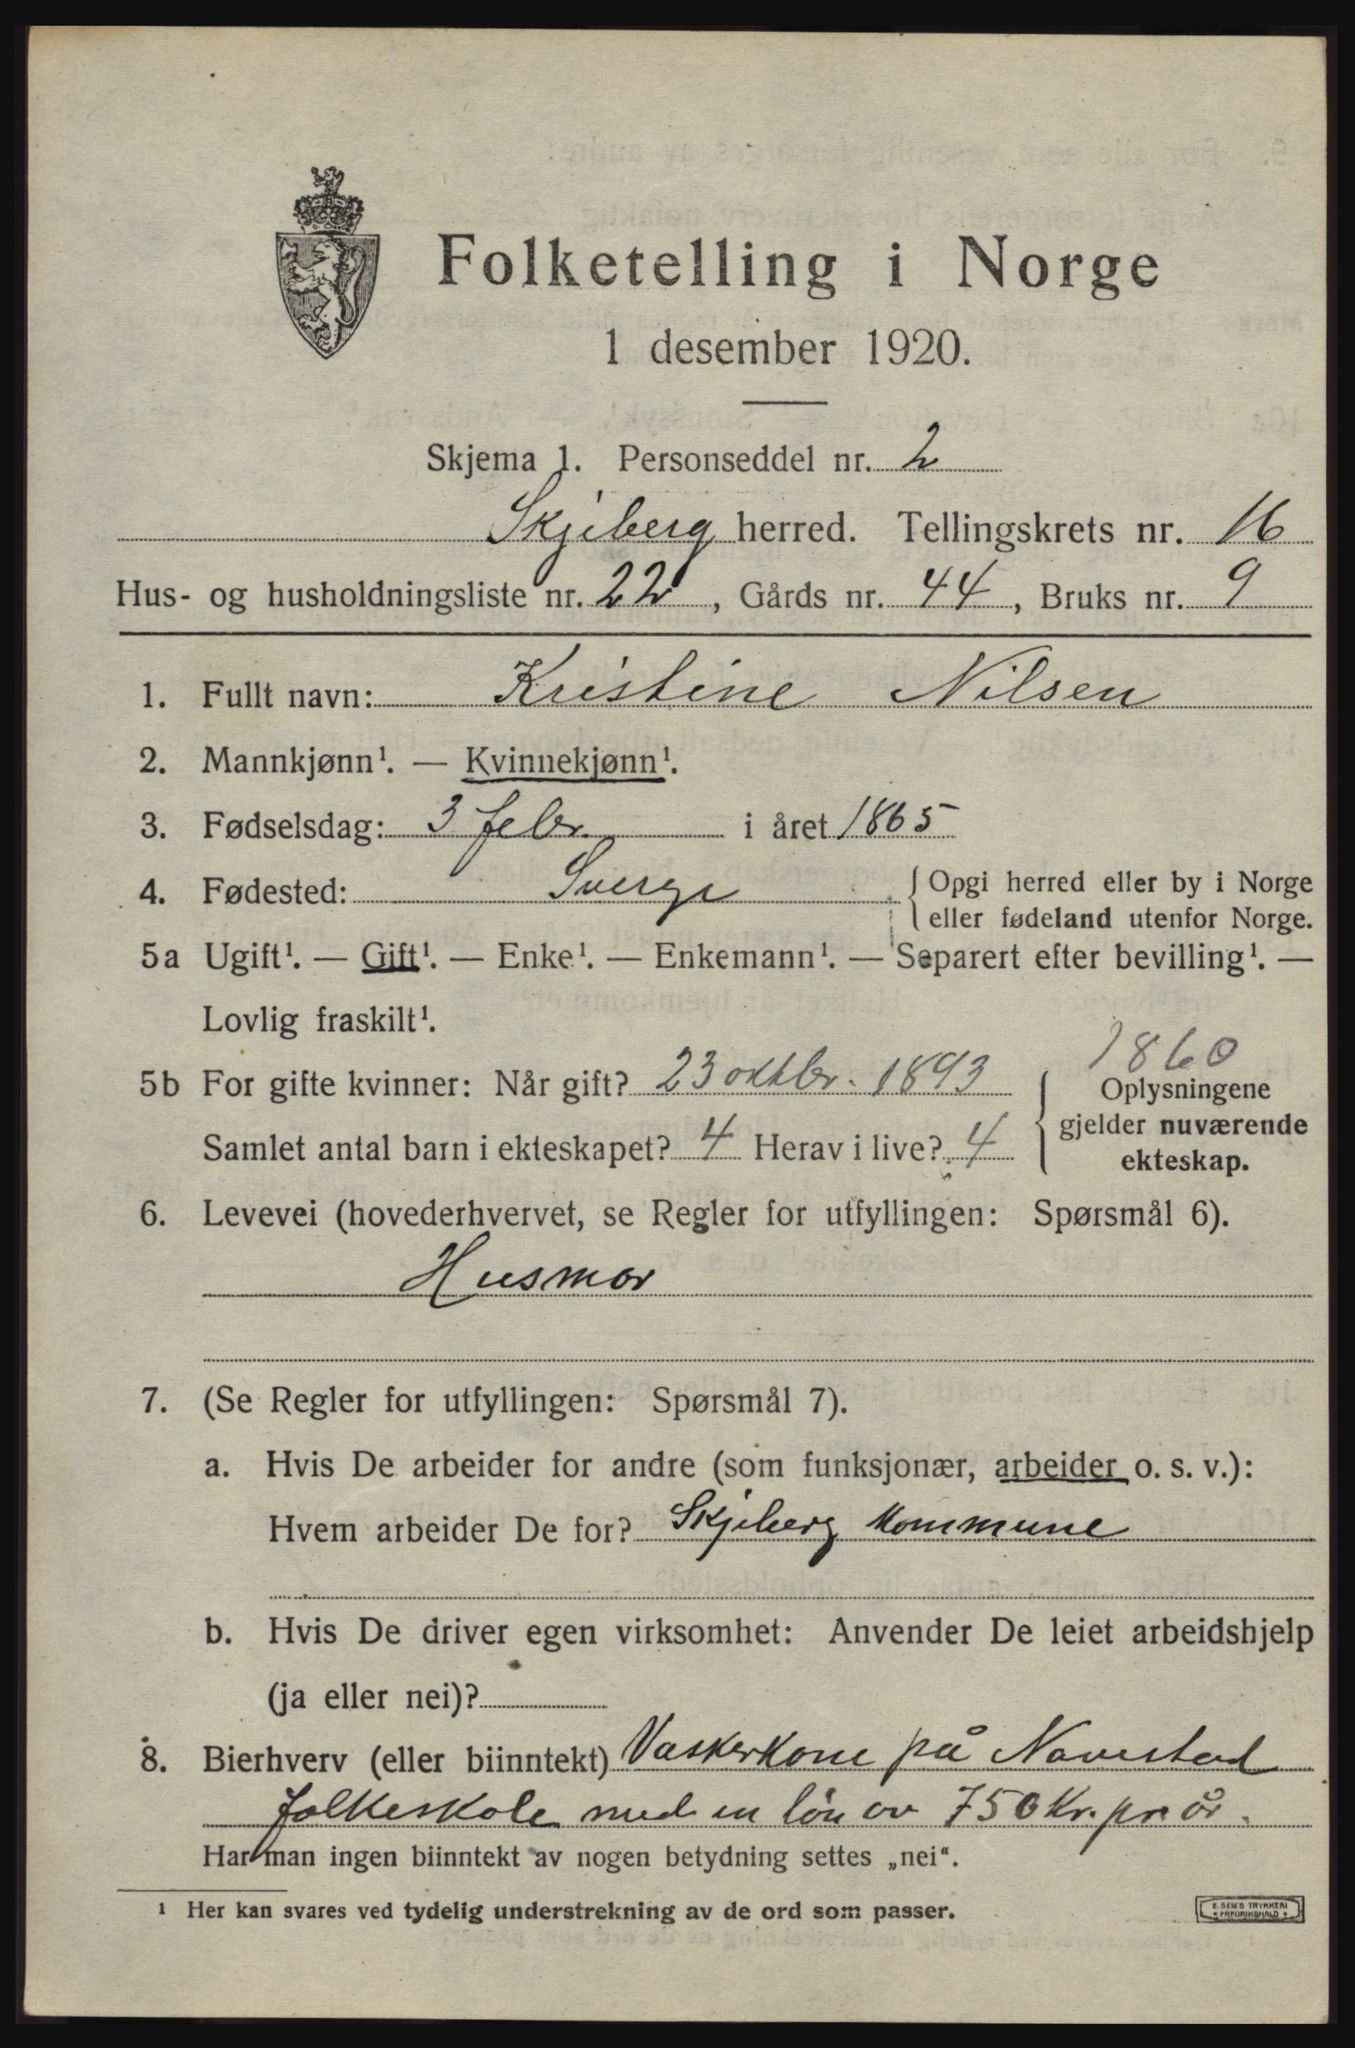 Folketelling i Norge
1 desember 1920.
Skjema 1. Personseddel nr. 2
Skjeberg herred. Tellingskrets nr. 16
Hus- og husholdningsliste nr. 22, Gårds nr. 44, Bruks nr. 9
1. Fullt navn: Kristine Nilsen
2. Mannkjønn¹. — Kvinnekjønn¹.
3. Fødselsdag: 3 febr. i året 1865
4. Fødested: Sverge { Opgi herred eller by i Norge
eller fødeland utenfor Norge.
5a Ugift¹. — Gift¹. — Enke¹. — Enkemann¹. — Separert efter bevilling¹. —
Lovlig fraskilt¹.
1860
5b For gifte kvinner: Når gift? 23 oktbr. 1893 { Oplysningene
gjelder nuværende
Samlet antal barn i ekteskapet? 4 Herav i live? 4 ekteskap.
6. Levevei (hovederhvervet, se Regler for utfyllingen: Spørsmål 6).
Husmor
7. (Se Regler for utfyllingen: Spørsmål 7).
a. Hvis De arbeider for andre (som funksjonær, arbeider o. s. v.):
Hvem arbeider De for? Skjeberg Kommune
b. Hvis De driver egen virksomhet: Anvender De leiet arbeidshjelp
(ja eller nei)?
8. Bierhverv (eller biinntekt) Vaskerkone på Navestad
folkeskole med en løn av 750 Kr. pr. år.
Har man ingen biinntekt av nogen betydning settes „nei“.
¹ Her kan svares ved tydelig understrekning av de ord som passer.
E. SEM'S TRYKKERI
FREDRIKSHALD